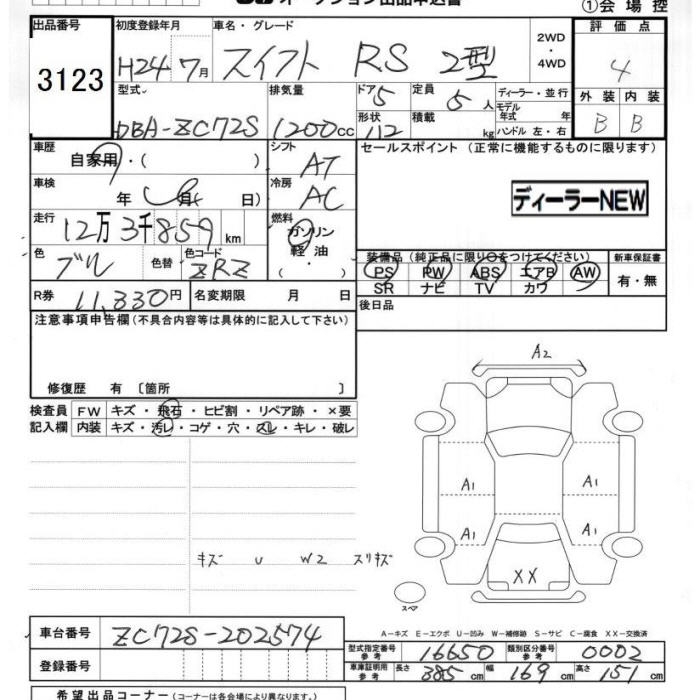 ①会場控
出品番号 初度登録年月 車名・グレード 2WD・4WD 評価点
3123 H24 7月 スイフト RS 2型 4
型式 排気量 ドア 5 定員 5人 ディーラー・並行 外装 内装
DBA-ZC72S 1200cc 形状 112 積載 kg モデル年式 年 B B
ハンドル 左・右
車歴 自家用・( ) シフト AT セールスポイント (正常に機能するものに限ります)
車検 年 月( 日) 冷房 AC ディーラーNEW
走行 12万3千859km 燃料 ガソリン 軽油・
色 ブル 色替 色コード ZRZ 装備品(純正品に限り〇をつけてください) 新車保証書
PS PW ABS エアB AW 有・無
SR ナビ TV カワ
R券 11,330円 名変期限 月 日 後日品
注意事項申告欄(不具合内容等は具体的に記入して下さい)
修復歴 有 〔箇所 〕
A2
検査員 FW キズ・飛石・ヒビ割・リペア跡・×要
記入欄 内装 キズ・汚レ・コゲ・穴・スレ・キレ・破レ
A1 A1
A1 A1
キズ U W2 スリキズ
XX
スペア
A-キズ E-エクボ U-凹み W-補修跡 S-サビ C-腐食 XX-交換済
車台番号 ZC72S-202574
型式指定番号 参考 16650 類別区分番号 参考 0002
登録番号 車庫証明用 参考 長さ 385cm 幅 169cm 高さ 151cm
希望出品コーナー(コーナーは各会場により異なります)